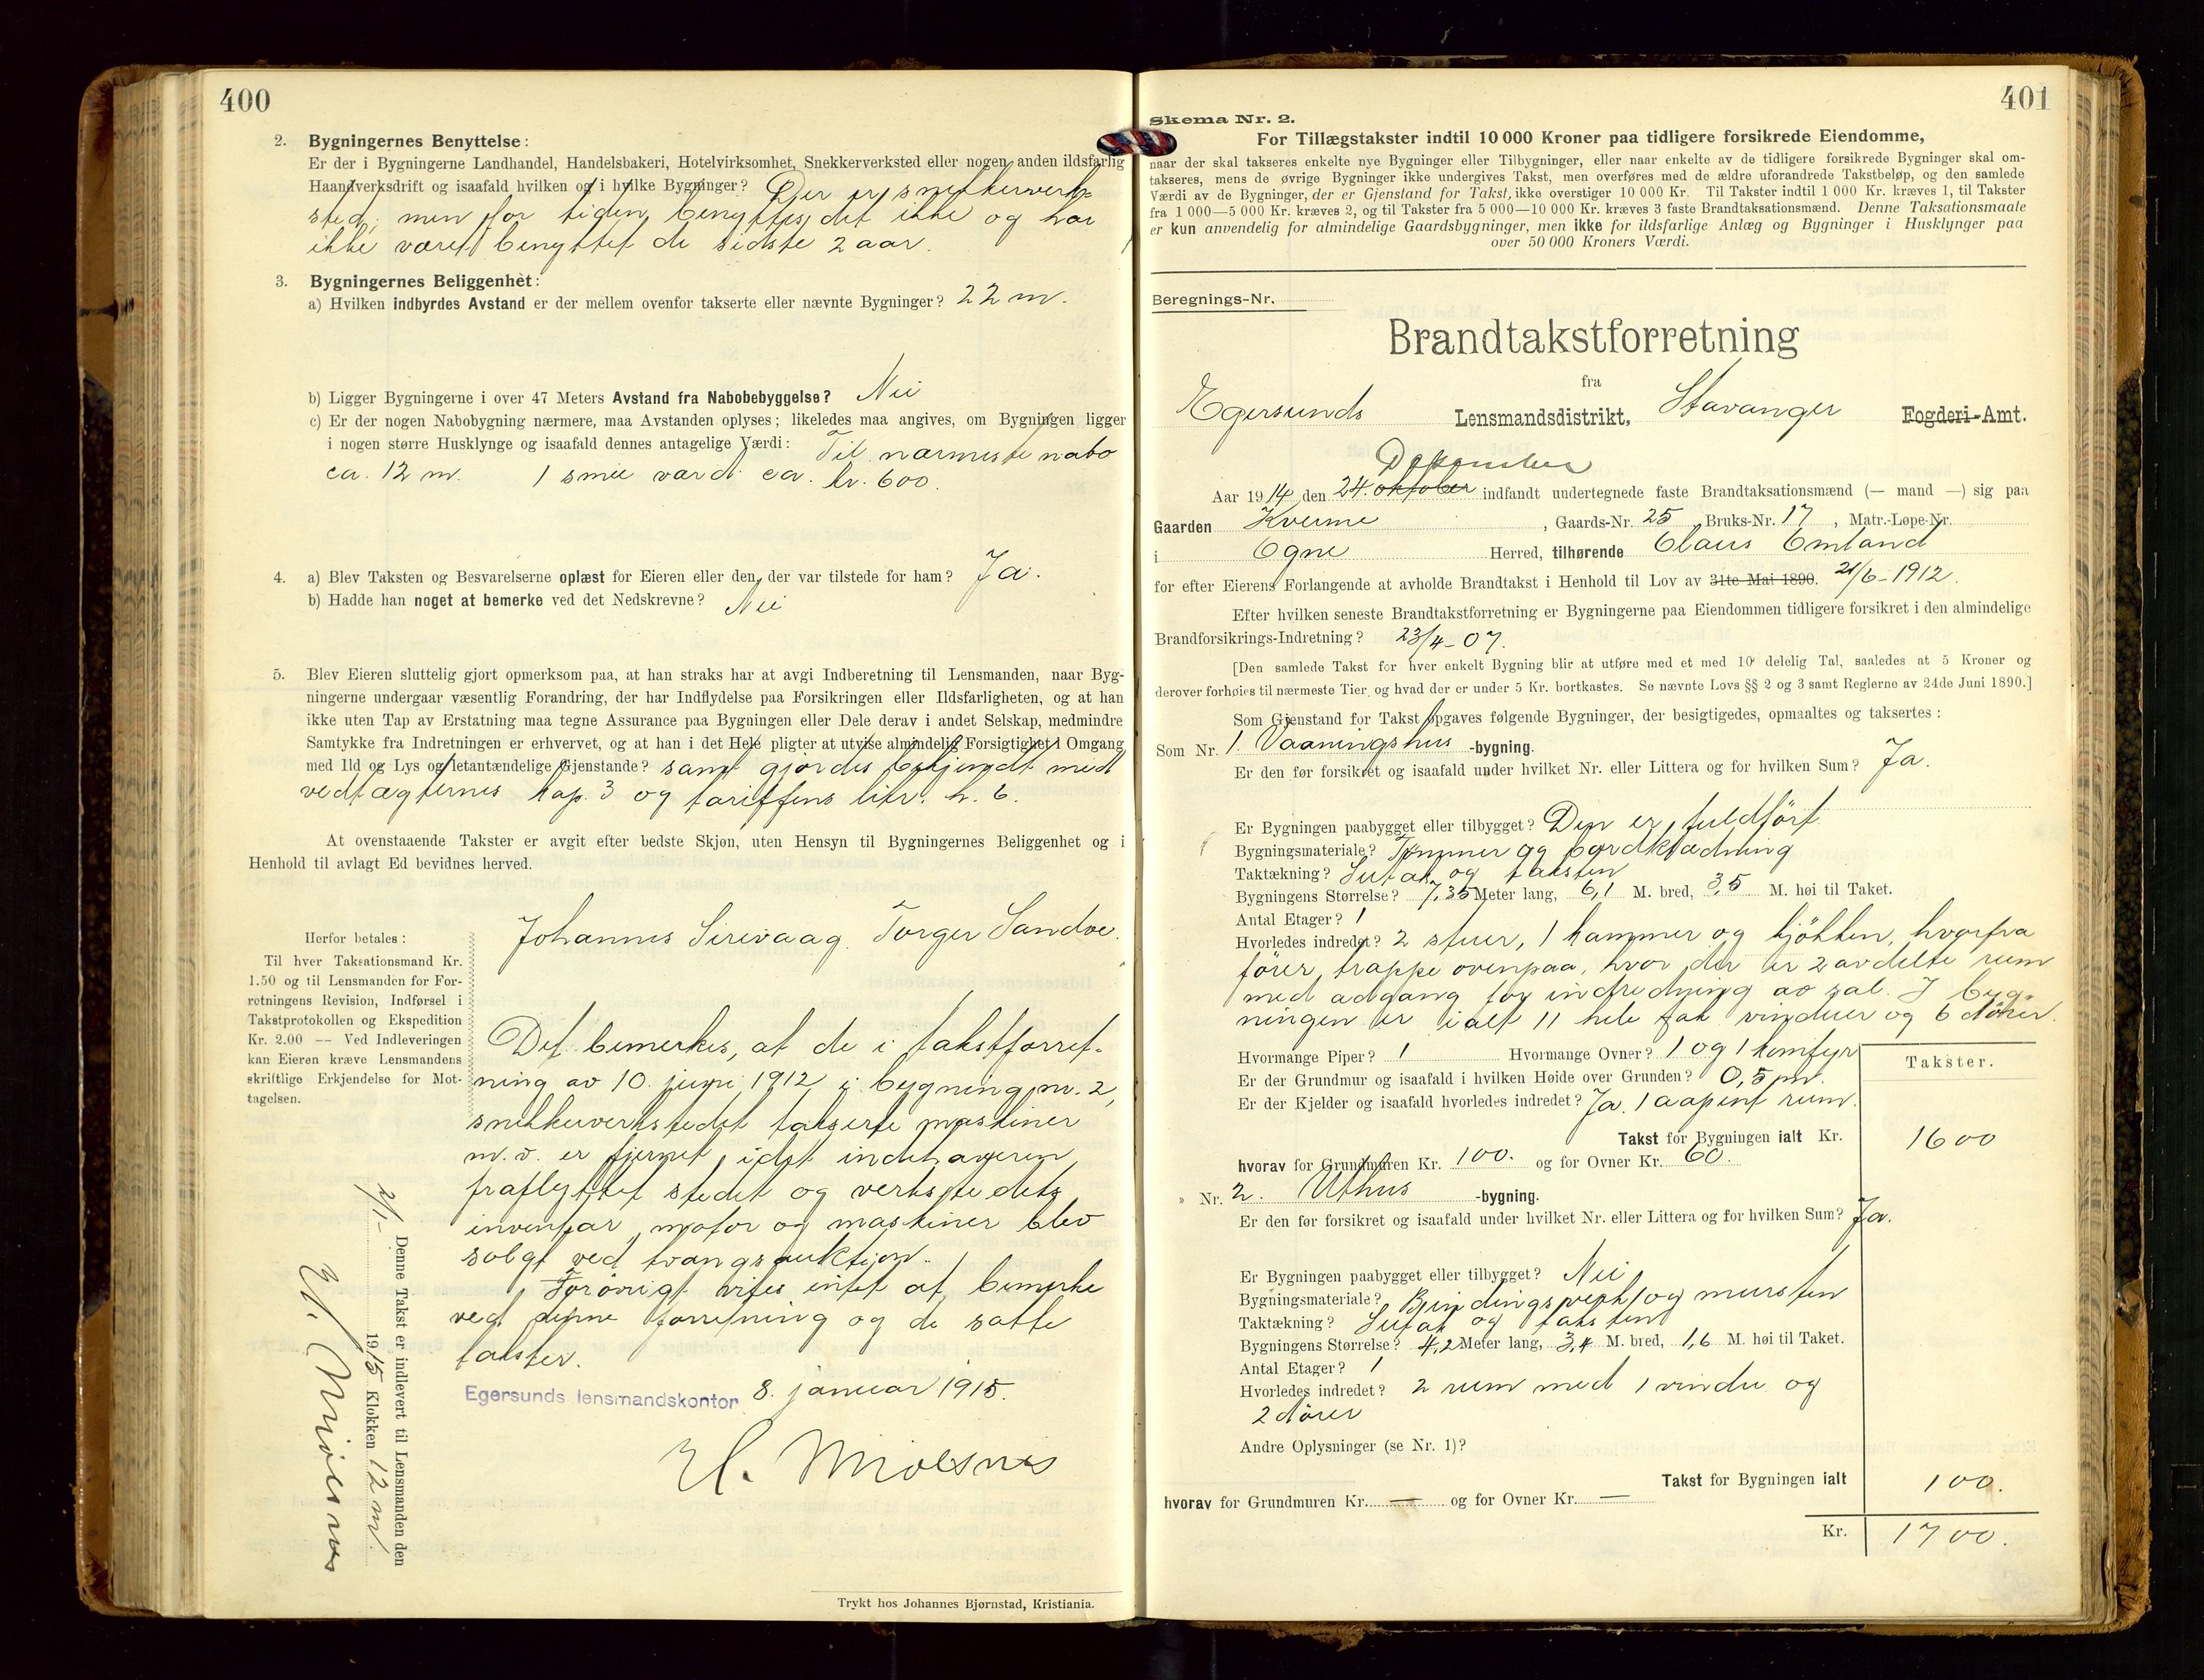 400
2. Bygningernes Benyttelse:
Er der i Bygningerne Landhandel, Handelsbakeri, Hotelvirksomhet, Snekkerverksted eller nogen anden ildsfarlig
Haandverksdrift og isaafald hvilken og i hvilke Bygninger? Der er snekkerverk-
sted, men for tiden benyttes det ikke og har
ikke været benyttet de sidste 2 aar.
3. Bygningernes Beliggenhet:
a) Hvilken indbyrdes Avstand er der mellem ovenfor takserte eller nævnte Bygninger? 22 m.
b) Ligger Bygningerne i over 47 Meters Avstand fra Nabobebyggelse? Nei
c) Er der nogen Nabobygning nærmere, maa Avstanden oplyses; likeledes maa angives, om Bygningen ligger
i nogen større Husklynge og isaafald dennes antagelige Værdi: Til nærmeste nabo
ca. 12 m. 1 smie værdi ca. kr. 600.
4. a) Blev Taksten og Besvarelserne oplæst for Eieren eller den, der var tilstede for ham? Ja.
b) Hadde han noget at bemerke ved det Nedskrevne? Nei
5. Blev Eieren sluttelig gjort opmerksom paa, at han straks har at avgi Indberetning til Lensmanden, naar Byg-
ningerne undergaar væsentlig Forandring, der har Indflydelse paa Forsikringen eller Ildsfarligheten, og at han
ikke uten Tap av Erstatning maa tegne Assurance paa Bygningen eller Dele derav i andet Selskap, medmindre
Samtykke fra Indretningen er erhvervet, og at han i det Hele pligter at utvise almindelig Forsigtighet i Omgang
med Ild og Lys og letantændelige Gjenstande? samt gjordes bekjendt med
vedtægternes kap. 3 og tariffens litr. h. 6.
At ovenstaaende Takster er avgit efter bedste Skjøn, uten Hensyn til Bygningernes Beliggenhet og i
Henhold til avlagt Ed bevidnes herved.
Johannes Sirevaag. Torger Sandve.
Herfor betales:
Til hver Taksationsmand Kr.
1.50 og til Lensmanden for For-
retningens Revision, Indførsel i
Takstprotokollen og Ekspedition
Kr. 2.00 — Ved Indleveringen
kan Eieren kræve Lensmandens
skriftlige Erkjendelse for Mot-
tagelsen.
Det bemerkes, at de i takstforret-
ning av 10. juni 1912 i bygning nr. 2,
snekkerverkstedet takserte maskiner
m.v. er fjernet, idet indehaveren
fraflyttet stedet og verkstedets
inventar, motor og maskiner blev
solgt ved tvangsauktion.
Forøvrigt vites intet at bemerke
ved denne forretning og de satte
takster.
Egersunds lensmandskontor 8. januar 1915.
H.
Denne Takst er indlevert til Lensmanden den
2/1- 1915 Klokken 12 m.
H.
Trykt hos Johannes Bjørnstad, Kristiania.
401
Skema Nr. 2.
For Tillægstakster indtil 10 000 Kroner paa tidligere forsikrede Eiendomme,
naar der skal takseres enkelte nye Bygninger eller Tilbygninger, eller naar enkelte av de tidligere forsikrede Bygninger skal om-
takseres, mens de øvrige Bygninger ikke undergives Takst, men overføres med de ældre uforandrede Takstbeløp, og den samlede
Værdi av de Bygninger, der er Gjenstand for Takst, ikke overstiger 10 000 Kr. Til Takster indtil 1 000 Kr. kræves 1, til Takster
fra 1 000—5 000 Kr. kræves 2, og til Takster fra 5 000—10 000 Kr. kræves 3 faste Brandtaksationsmænd. Denne Taksationsmaate
er kun anvendelig for almindelige Gaardsbygninger, men ikke for ildsfarlige Anlæg og Bygninger i Husklynger paa
over 50 000 Kroners Værdi.
Beregnings-Nr.
Brandtakstforretning
fra
Egersunds Lensmandsdistrikt, Stavanger Fogderi-Amt.
Desember
Aar 1914 den 24. oktober indfandt undertegnede faste Brandtaksationsmænd (— mand —) sig paa
Gaarden Kverme, Gaards-Nr. 25 Bruks-Nr. 17, Matr.-Løpe-Nr.
i Ogne Herred, tilhørende Claus Omland
for efter Eierens Forlangende at avholde Brandtakst i Henhold til Lov av 31te Mai 1890. 21/6-1912.
Efter hvilken seneste Brandtakstforretning er Bygningerne paa Eiendommen tidligere forsikret i den almindelige
Brandforsikrings-Indretning? 23/4-07.
[Den samlede Takst for hver enkelt Bygning blir at utføre med et med 10 delelig Tal, saaledes at 5 Kroner og
derover forhøies til nærmeste Tier og hvad der er under 5 Kr. bortkastes. Se nævnte Lovs §§ 2 og 3 samt Reglerne av 24de Juni 1890.]
Som Gjenstand for Takst opgaves følgende Bygninger, der besigtigedes, opmaaltes og taksertes:
Som Nr. 1. Vaaningshus -bygning.
Er den før forsikret og isaafald under hvilket Nr. eller Littera og for hvilken Sum? Ja.
Er Bygningen paabygget eller tilbygget? Den er fuldført
Bygningsmateriale? Tømmer og bordklædning
Taktækning? Sutak og taksten
Bygningens Størrelse? 7,35 Meter lang, 6,1 M. bred, 3,5 M. høi til Taket.
Antal Etager? 1
Hvorledes indredet? 2 stuer, 1 kammer og kjøkken, hvorfra
fører trappe ovenpaa, hvor der er 2 avdelte rum
med adgang for indredning av sal. I byg-
ningen er ialt 11 hele fak vinduer og 6 dører.
Hvormange Piper? 1 Hvormange Ovner? 1 og 1 komfyr
Er der Grundmur og isaafald i hvilken Høide over Grunden? 0,5 m.
Er der Kjelder og isaafald hvorledes indredet? Ja. 1 aapent rum.
Takster.
Takst for Bygningen ialt Kr. 1600
hvorav for Grundmuren Kr. 100. og for Ovner Kr. 60.
» Nr. 2. Uthus -bygning.
Er den før forsikret og isaafald under hvilket Nr. eller Littera og for hvilken Sum? Ja.
Er Bygningen paabygget eller tilbygget? Nei
Bygningsmateriale? Bindingsverk og mursten
Taktækning? Sutak og taksten
Bygningens Størrelse? 4,2 Meter lang, 3,4 M. bred, 1,6 M. høi til Taket.
Antal Etager? 1
Hvorledes indredet? 2 rum med 1 vindu og
2 dører
Andre Oplysninger (se Nr. 1)?
Takst for Bygningen ialt 100.
hvorav for Grundmuren Kr. — og for Ovner Kr. —
Kr. 1700.